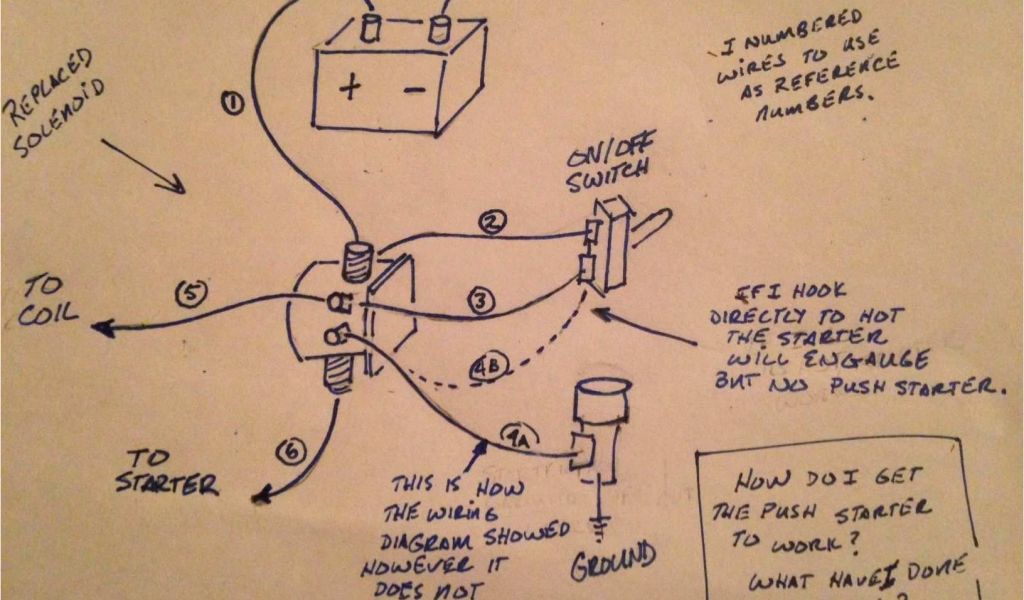 REPLACED
SOLENOID
+ -
I NUMBERED
WIRES TO USE
AS REFERENCE
NUMBERS.
ON/OFF
SWITCH
1
2
3
4B
4A
5
6
TO
COIL
IF I HOOK
DIRECTLY TO HOT
THE STARTER
WILL ENGAUGE
BUT NO PUSH STARTER.
TO
STARTER
THIS IS HOW
THE WIRING
DIAGRAM SHOWED
HOWEVER IT
DOES NOT
GROUND
HOW DO I GET
THE PUSH STARTER
TO WORK?
WHAT HAVE I DONE
?